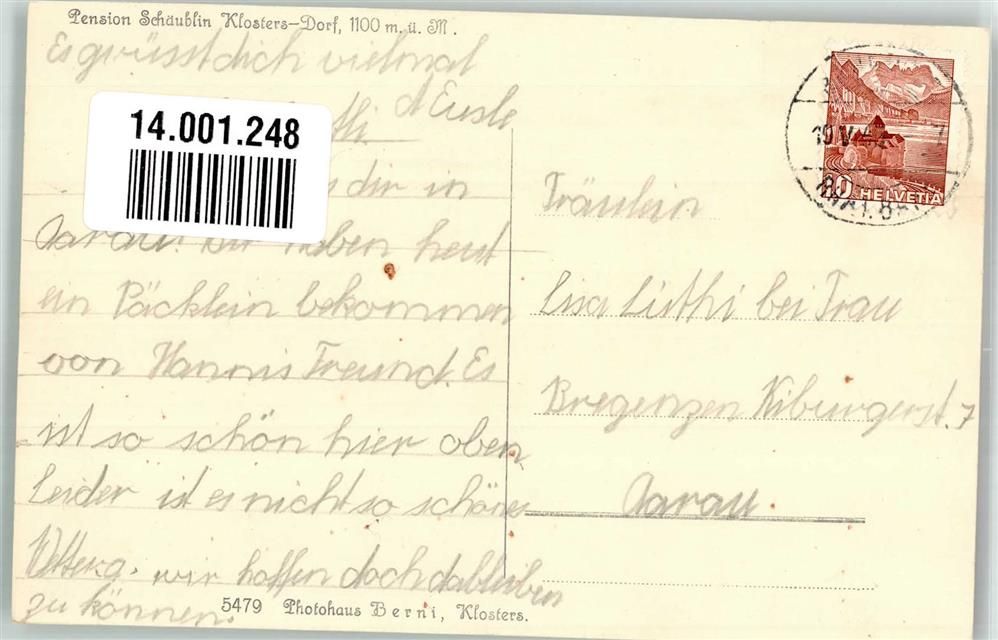 Pension Schäublin Klosters-Dorf, 1100 m. ü. M.
Es grüsst dich vielmal
14.001.248
dir in
Aarau. Wir haben heut
ein Päcklein bekommen
von Hannis Freund. Es
ist so schön hier oben
Leider ist es nicht so schönes
wir hoffen doch dableiben
zu können.
5479 Photohaus Berni, Klosters.
19.V.42
20 HELVETIA
Fräulein
Lisa Lüthi bei Frau
Bregenzen Kiburgerst. 7
Aarau